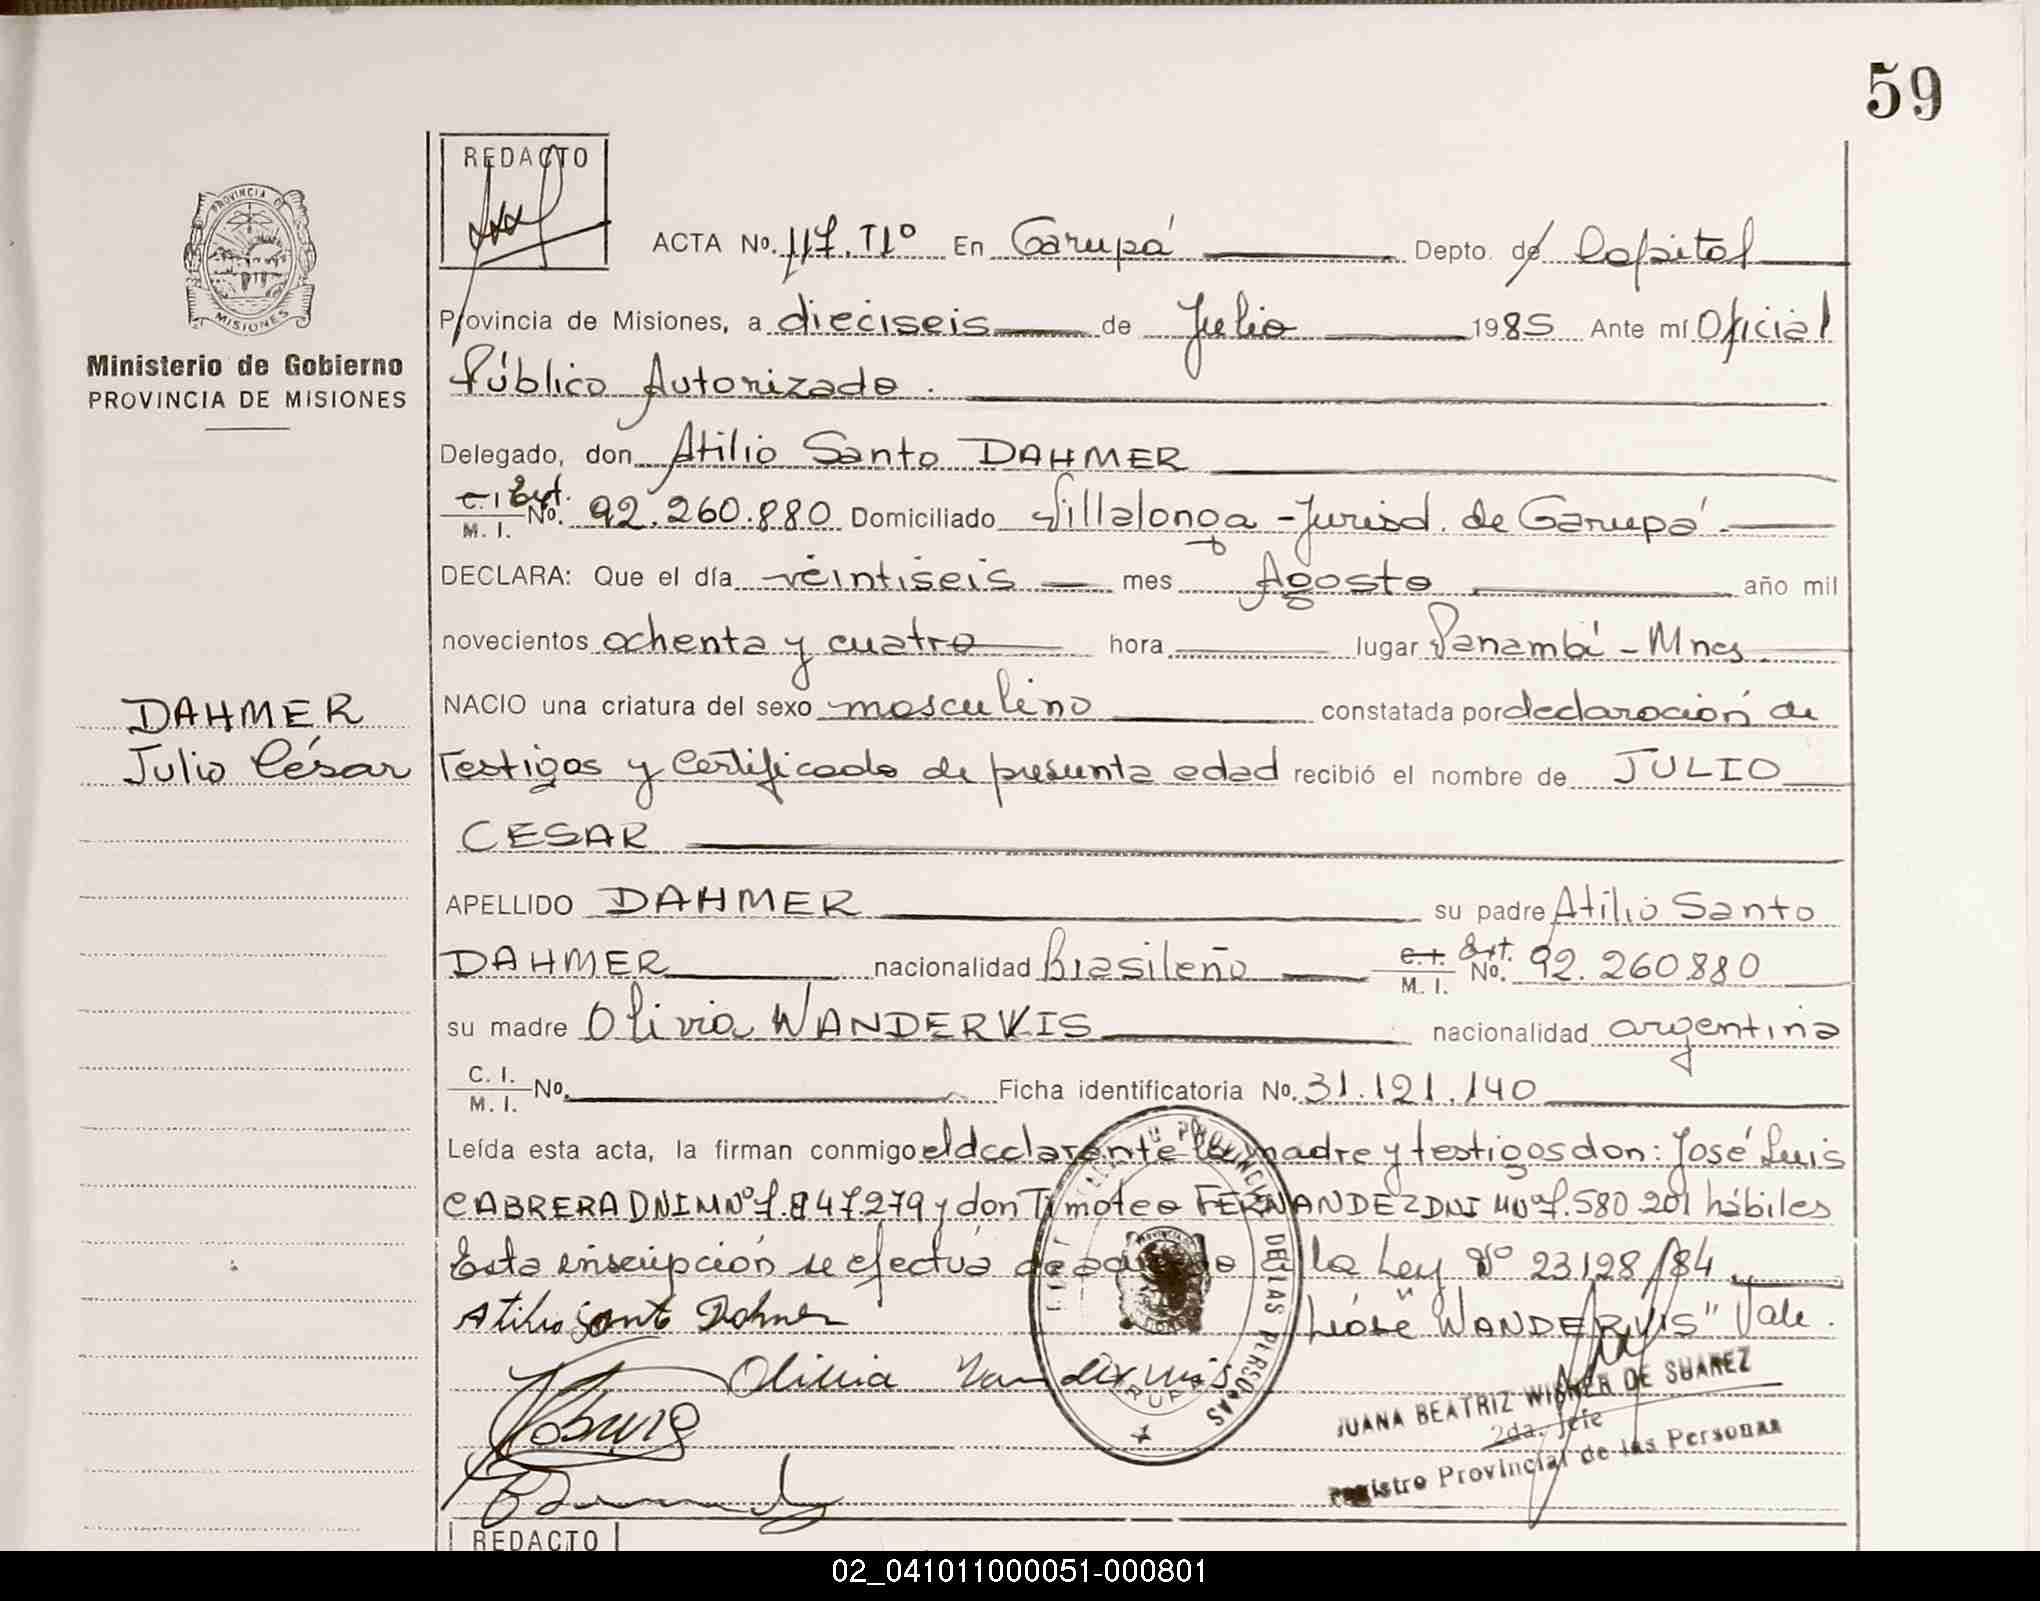 59
REDACTO
PROVINCIA D
MISIONES
Ministerio de Gobierno
PROVINCIA DE MISIONES
ACTA No. 117. Tº En Garupá Depto. de Capital
Provincia de Misiones, a dieciseis de Julio 1985 Ante mí Oficial
Público Autorizado.
Delegado, don Atilio Santo DAHMER
C.I Ext.
M. I. No. 92.260.880 Domiciliado Villalonga - Jurisd. de Garupá.
DECLARA: Que el día veintiseis mes Agosto año mil
novecientos ochenta y cuatro hora lugar Panambí - Mnes.
DAHMER
Julio César
NACIO una criatura del sexo masculino constatada por declaración de
Testigos y Certificado de presunta edad recibió el nombre de JULIO
CESAR
APELLIDO DAHMER su padre Atilio Santo
DAHMER nacionalidad Brasileño C.I. Ext. M. I. No. 92.260880
su madre Olivia WANDERVIS nacionalidad argentina
C. I.
M. I. No. Ficha identificatoria No. 31.121.140
Leída esta acta, la firman conmigo el declarante la madre y testigos don: José Luis
CABRERA DNI MNº 7.847.279 y don Timoteo FERNANDEZ DNI MNº 7.580.201 hábiles
Esta inscripción se efectúa de acuerdo a la Ley Nº 23128/84
Atilio Santo Dahmer Léase "WANDERVIS" Vale.
Olivia Vandervis
DE LAS PERSONAS
JUANA BEATRIZ WIGNER DE SUAREZ
2da. Jefe
Registro Provincial de las Personas
REDACTO
02_041011000051-000801